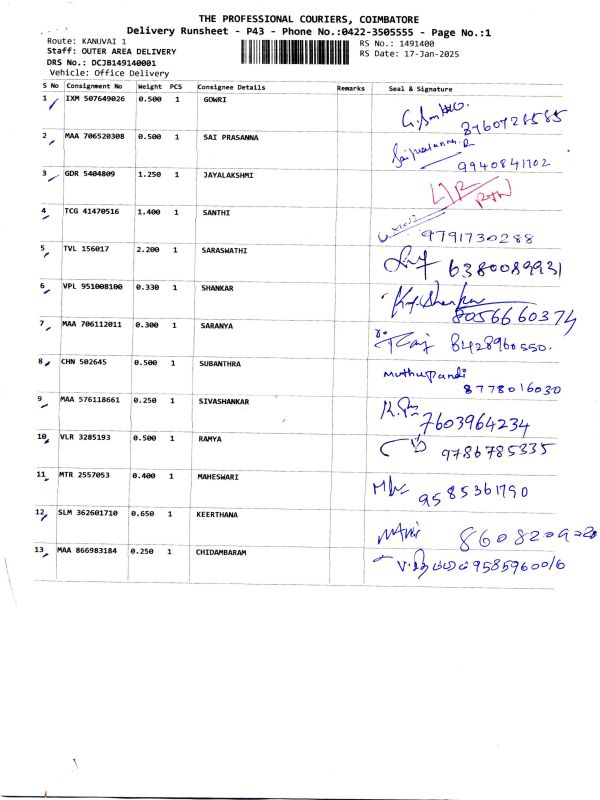 THE PROFESSIONAL COURIERS, COIMBATORE
Delivery Runsheet - P43 - Phone No.:0422-3505555 - Page No.:1
Route: KANUVAI 1
Staff: OUTER AREA DELIVERY
DRS No.: DCJB149140001
Vehicle: Office Delivery
RS No.: 1491400
RS Date: 17-Jan-2025
S No Consignment No Weight PCS Consignee Details Remarks Seal & Signature
1 IXM 507649026 0.500 1 GOWRI
2 MAA 706520308 0.500 1 SAI PRASANNA Saiprasanna.R 9940841702
3 GDR 5404809 1.250 1 JAYALAKSHMI
4 TCG 41470516 1.400 1 SANTHI 9791730288
5 TVL 156017 2.200 1 SARASWATHI 6380089931
6 VPL 951008100 0.330 1 SHANKAR 8056660374
7 MAA 706112011 0.300 1 SARANYA 8428960550.
8 CHN 502645 0.500 1 SUBANTHRA muthupandi 8778016030
9 MAA 576118661 0.250 1 SIVASHANKAR 7603964234
10 VLR 3285193 0.500 1 RAMYA 9786785335
11 MTR 2557053 0.400 1 MAHESWARI 9585361790
12 SLM 362601710 0.650 1 KEERTHANA
13 MAA 866983184 0.250 1 CHIDAMBARAM 9585960016